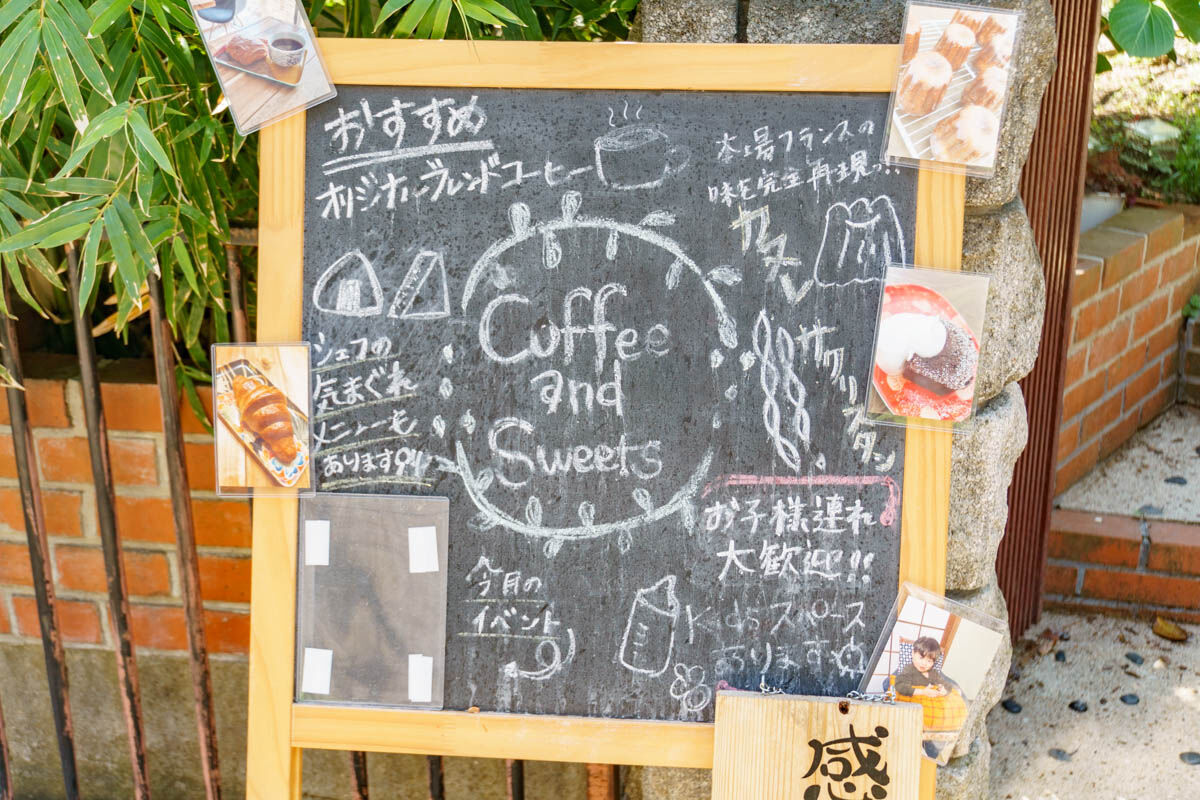 おすすめ
オリジナルブレンドコーヒー
本場フランスの
味を完全再現っ!!
カヌレ
シェフの
気まぐれ
メニューも
あります♀!
Coffee
and
Sweets
サクリスタン
お子様連れ
大歓迎!!
Kidsスペース
あります
今月の
イベント
感